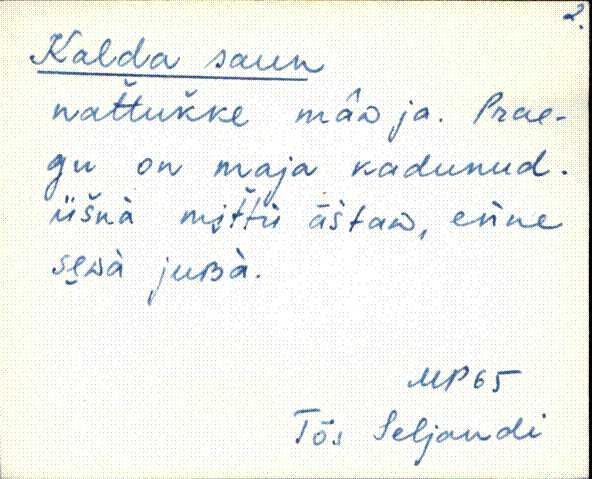 2.
Kalda saun
nat̆t̆ukke mâɷ ja. Prae-
gu on maja kadunud.
üšnà mi̮t̆t̆ù āštaɷ, enne
se̮ɷà juʙà.
MP65
Tõs Seljandi